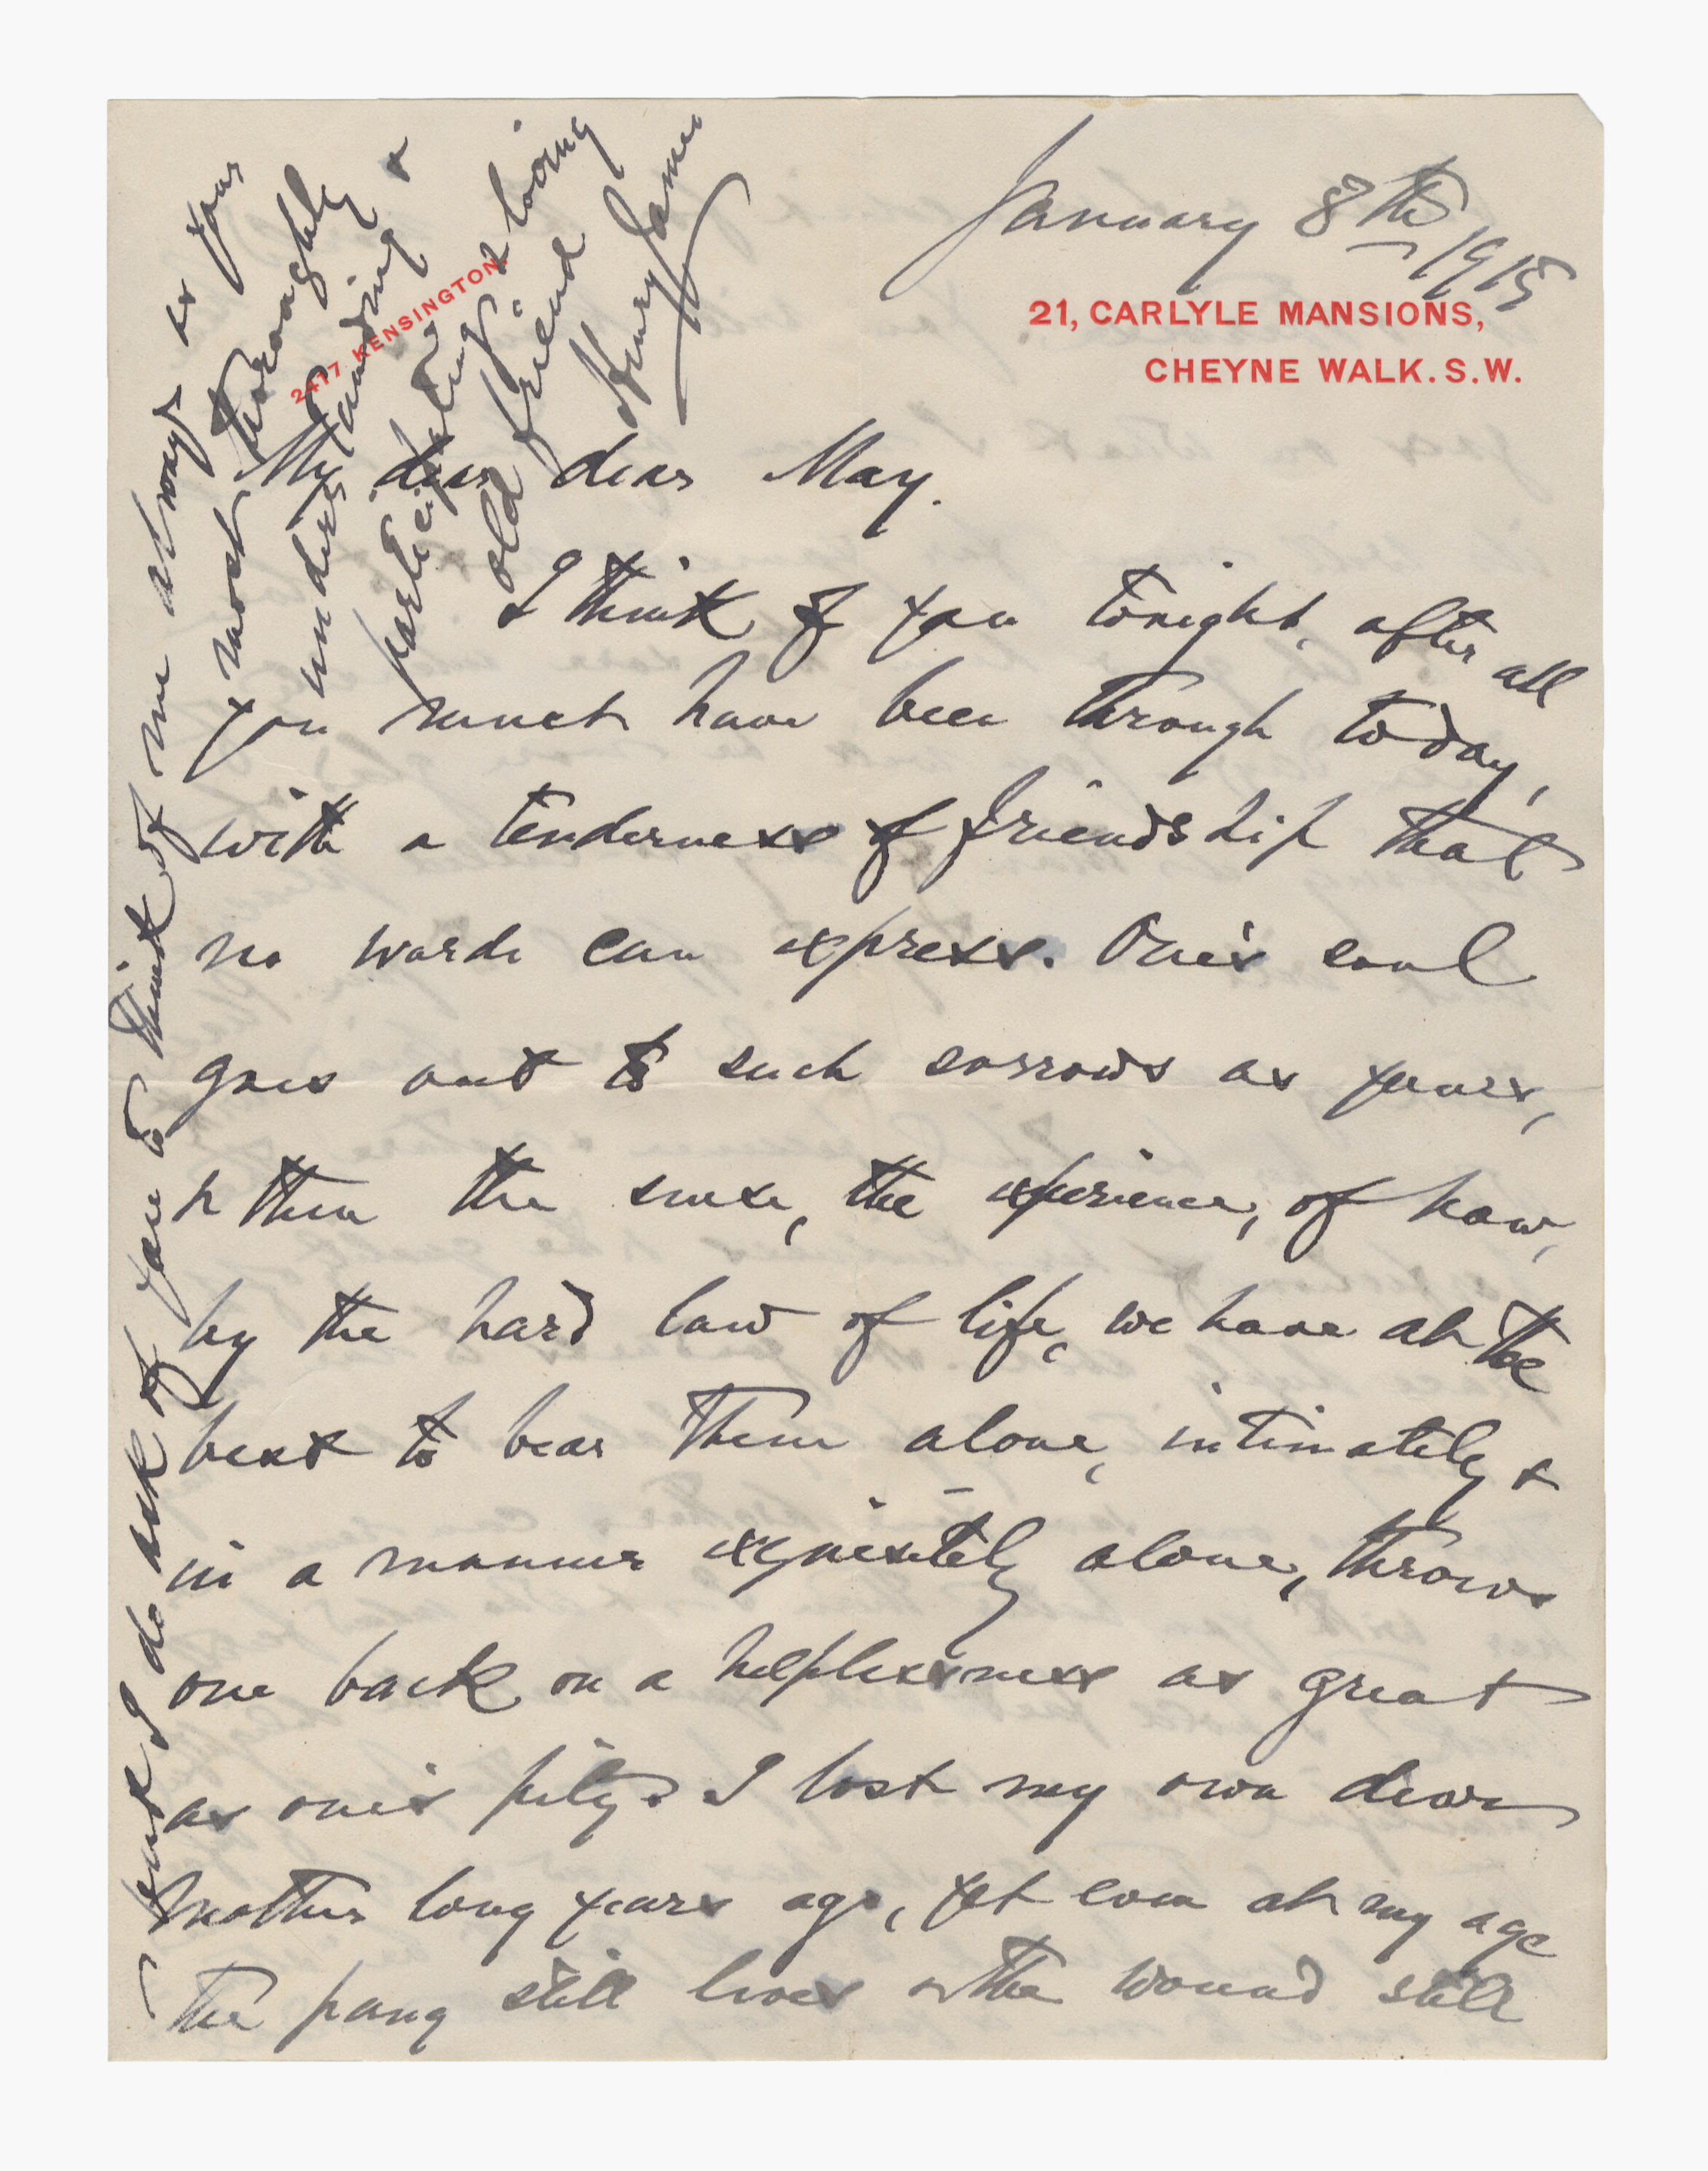 January 8th 1915
2417 KENSINGTON.
21, CARLYLE MANSIONS,
CHEYNE WALK. S.W.
My dear dear May.
I think of you tonight, after all
you must have been through today,
with a tenderness of friendship that
no words can express. One's soul
goes out to such sorrows as yours,
& then the sense, the experience, of how,
by the hard law of life, we have at the
best to bear them alone, intimately &
in a manner exquisitely alone, throws
one back on a helplessness as great
as one's pity. I lost my own dear
mother long years ago, yet even at my age
the pang still lives & the wound still
but I do ask of you to think of me always as your
most thoroughly
understanding &
participating, & loving
old friend
Henry James